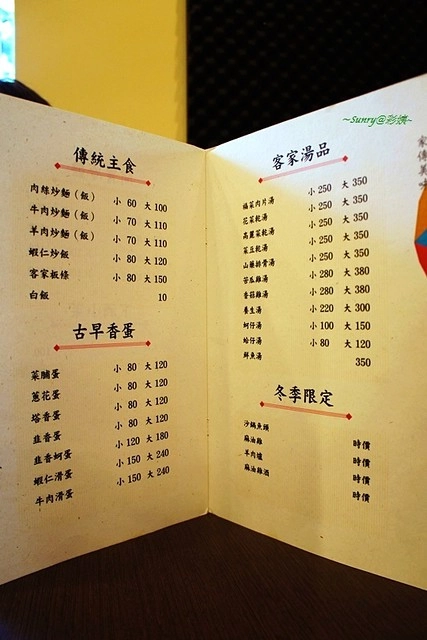 ~Sunry@彩嬪~
傳統主食
肉絲炒麵(飯) 小 60 大 100
牛肉炒麵(飯) 小 70 大 110
羊肉炒麵(飯) 小 70 大 110
蝦仁炒飯 小 80 大 120
客家板條 小 80 大 150
白飯 10
古早香蛋
菜脯蛋 小 80 大 120
蔥花蛋 小 80 大 120
塔香蛋 小 80 大 120
韭香蛋 小 80 大 120
韭香蚵蛋 小 120 大 180
蝦仁滑蛋 小 150 大 240
牛肉滑蛋 小 150 大 240
客家湯品
福菜肉片湯 小 250 大 350
花菜乾湯 小 250 大 350
高麗菜乾湯 小 250 大 350
菜豆乾湯 小 250 大 350
山藥排骨湯 小 250 大 350
苦瓜雞湯 小 280 大 380
香菇雞湯 小 280 大 380
養生湯 小 220 大 300
蚵仔湯 小 100 大 150
蛤仔湯 小 80 大 120
鮮魚湯 350
冬季限定
沙鍋魚頭 時價
麻油雞 時價
羊肉爐 時價
麻油雞酒 時價
家傳美味